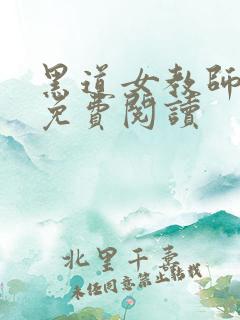 黑道女教師
免費閱讀
北里千寻
未经同意禁止转载